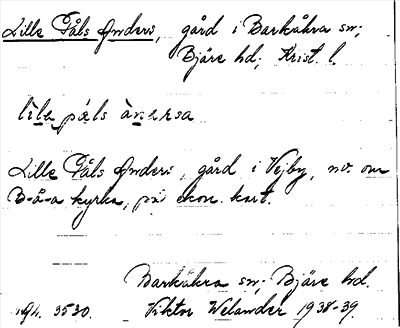 Lille Påls Anders, gård i Barkåkra sn;
Bjäre hd; Krist. l.
lìlə pɑ́ls ànərsa
Lille Påls Anders, gård i Vejby, nv. om
B-å-a kyrka, på ekon. kart.
Barkåkra sn; Bjäre hd.
Viktor Welander 1938-39.
3530.